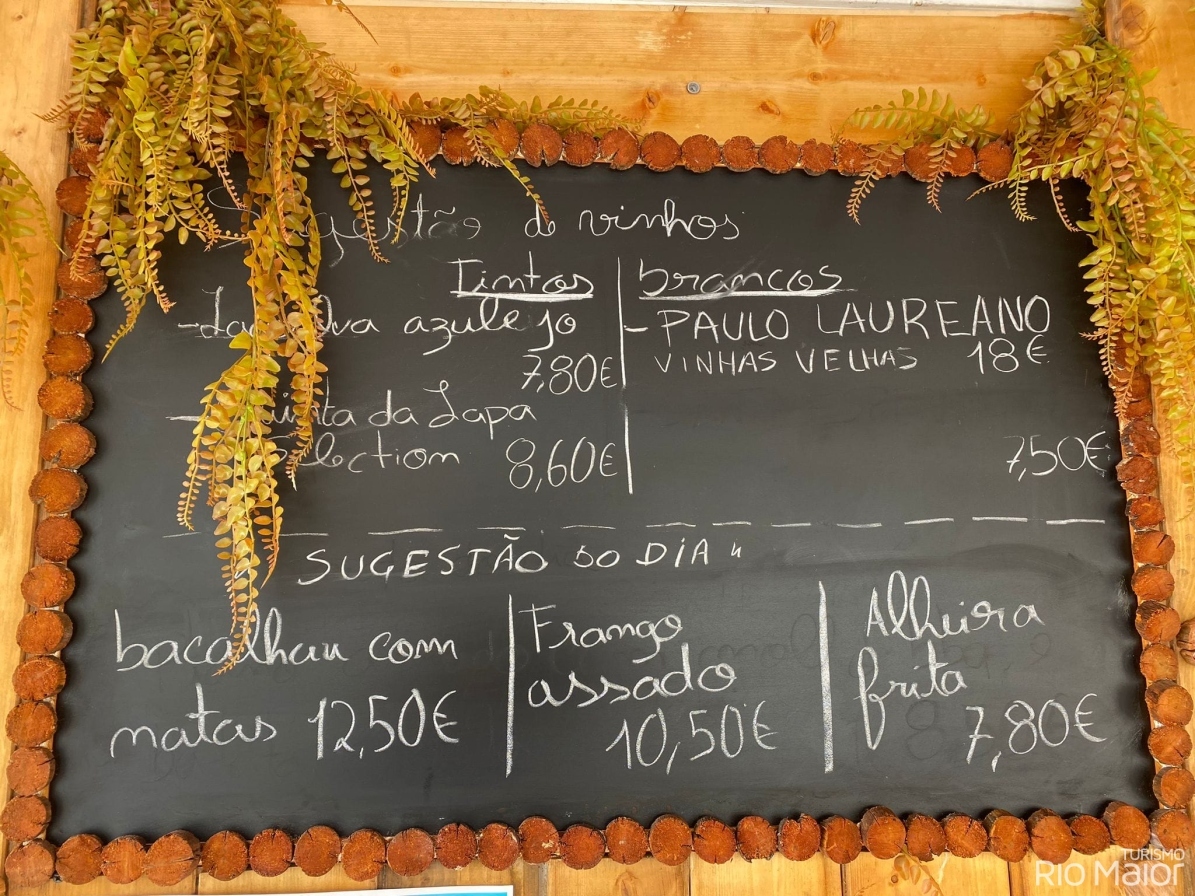 de vinhos
Tintos
azulejo
7,80€
da Lapa
8,60€
brancos
- PAULO LAUREANO
VINHAS VELHAS 18€
7,50€
SUGESTÃO DO DIA "
bacalhau com
natas 12,50€
Frango
assado
10,50€
Alheira
frita
7,80€
TURISMO
RIO MAIOR